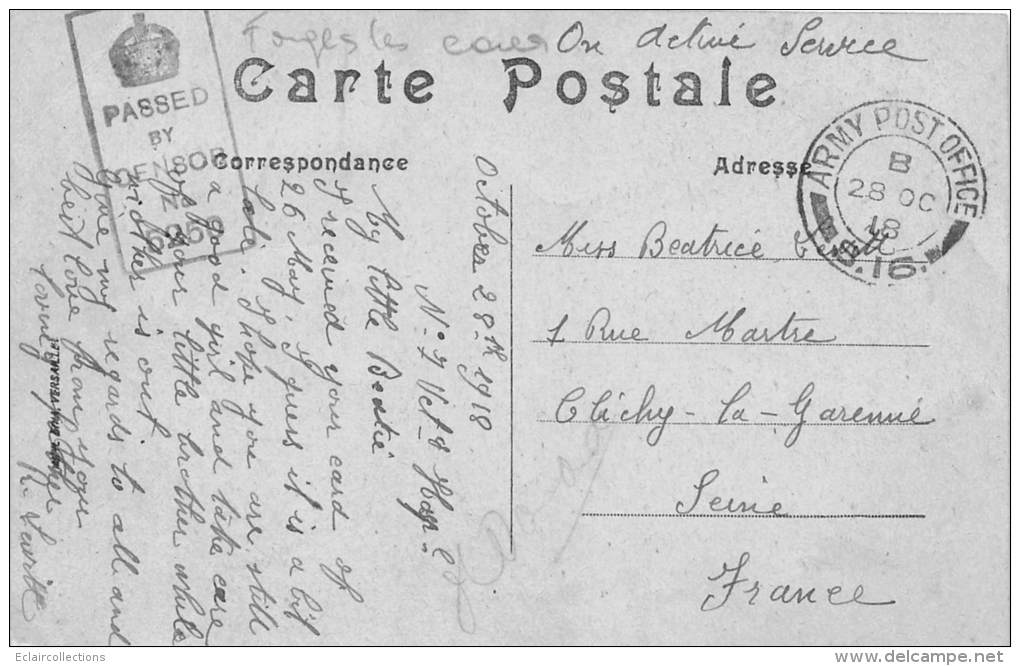 Forges les eaux
On Active Service
Carte Postale
PASSED
BY
CENSOR
Correspondance
Adresse
ARMY POST OFFICE
B
28 OC
18
S.16.
October 28th 1918
No 7 Vet Hosp.
My little Beatie
I received your card of
26 May, I gues it is a bit
late. I hope you are still
a good girl and take care
of your little brother while
mother is out.
Give my regards to all and
best love from your
loving
Miss Beatrice
1 Rue Martre
Clichy-la-Garenne
Seine
France
Eclaircollections
www.delcampe.net